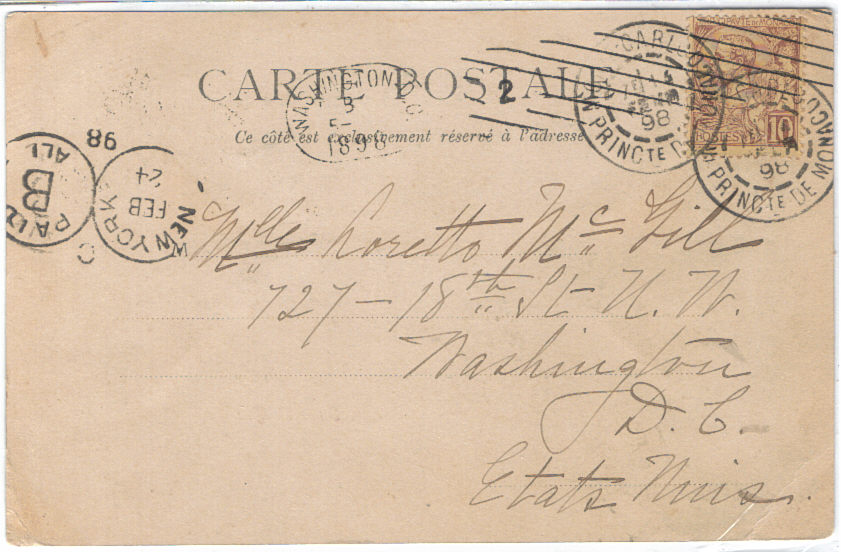 CARTE POSTALE
Ce côté est exclusivement réservé à l'adresse
WASHINGTON, D.C.
1898
2
CARLO
PRINCTE DE
98
PRINCTE DE MONACO
98
POSTES
10
NEW YORK
FEB
24
98
PAID
B
ALL
Mlle Loretto McGill
727 - 18th St N. W.
Washington
D. C.
Etats Unis.